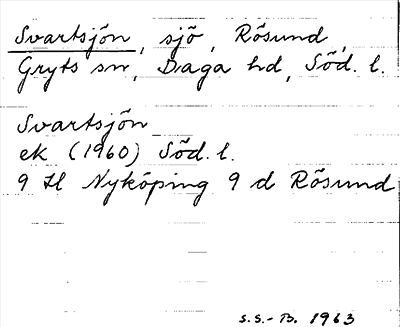 Svartsjön, sjö, Rösund,
Gryts sn, Daga hd, Söd. l.
Svartsjön
ek (1960) Söd. l.
9 H Nyköping 9 d Rösund
S.S.-B. 1963